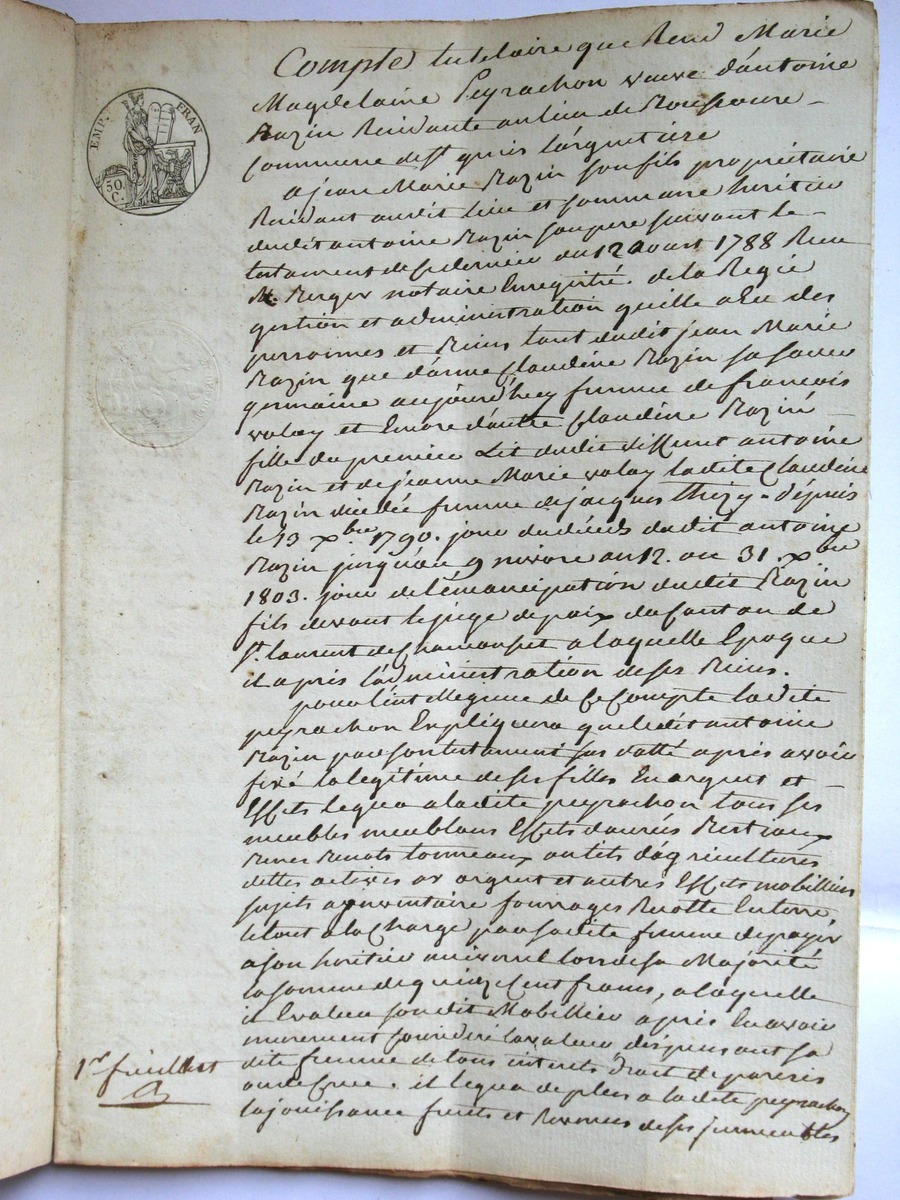 EMP. FRAN
50. C.
Compte tutelaire que Rend Marie
Magdelaine Peyrachon veuve d'antoine
Razin Residante au lieu de
commune de st genis l'argentiere
a jean Marie Razin son fils propriétaire
Residant audit lieu et commune heritier
dudit antoine Razin son pere suivant le
testament de ce dernier du 12 avast 1788 Recu
M. Berger notaire Enregistré. de la Regie
gestion et administration quelle a Eu des
personnes et Biens tant dudit jean Marie
Razin que d'anne Claudine Razin sa soeur
germaine aujourd'huy femme de francois
valoy et Encore d'autre Claudine Razin
fille du premier Lit dudit deffunt antoine
Razin et de jeanne Marie valoy ladite Claudine
Razin décédée femme de jacques thizy. depuis
le 13 xbre 1790. jour du décés dudit antoine
Razin jusqu'au 9 nivose an 12. ou 31. xbre
1803. jour de l'émancipation dudit Razin
fils devant le juge de paix du canton de
st. laurent de Chamousset a laquelle Epoque
il a pris l'administration de ses Biens.
pour l'intelligence de Ce Compte ladite
peyrachon Expliquera que ledit antoine
Razin par son testament sus datté apres avoir
fixé la legitime de ses filles En argent et
Effets legua a ladite peyrachon tous ses
meubles meublans Effets danrées Bestiaux
Benes Benots tonneaux outils d'agricultures
dettes actives or argent et autres Effets mobilliers
sujets a inventaire fourrages Recolte Enterre,
le tout a la Charge par sadite femme de payer
a son heritier universel lors de sa Majorité
la somme de quinze Cent francs, a laquelle
il Evalua sondit Mobillier apres En avoir
murement considéré la valeur dispensant sa
dite femme de tous interets droit de parisis
ou de Crue. il legua de plus a ladite peyrachon
la jouissance fruits et Revenus de ses jmmeubles
1er feuillet